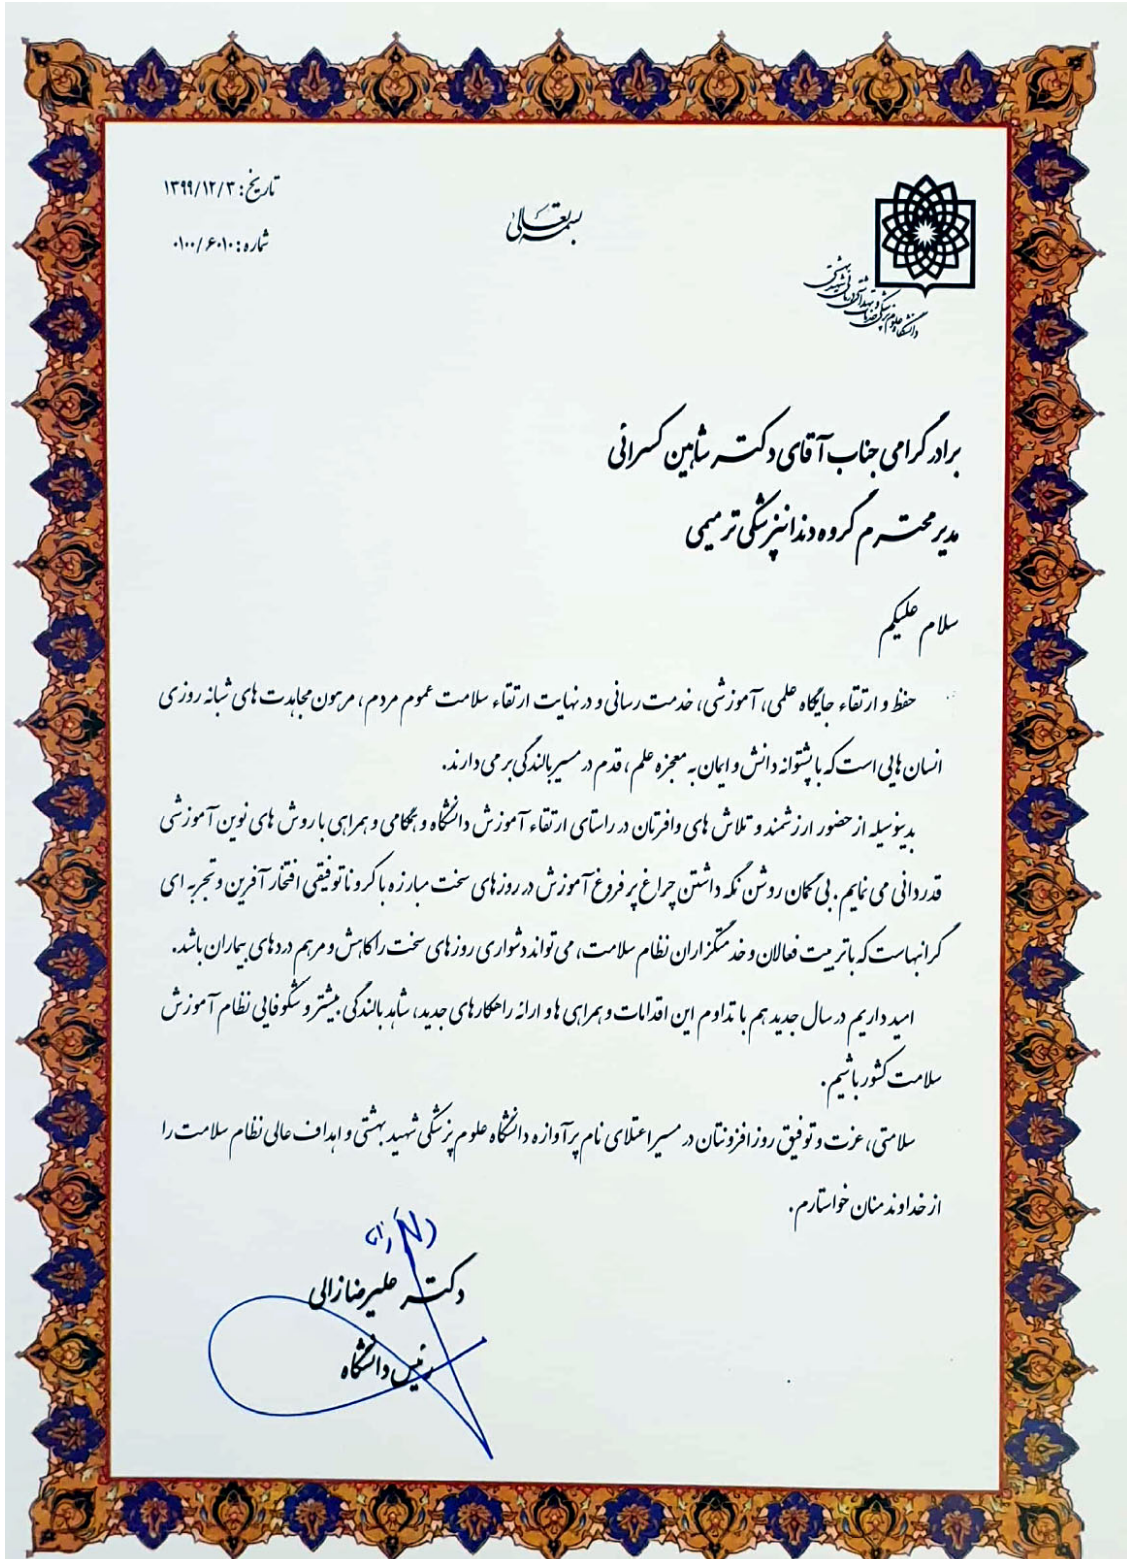 تاریخ: ۱۳۹۹/۱۲/۳
شماره: ۰۱۰۰/۶۰۱۰
بسمه تعالی
دانشگاه علوم پزشکی و خدمات بهداشتی درمانی شهید بهشتی
برادر گرامی جناب آقای دکتر شاهین کسرائی
مدیر محترم گروه دندانپزشکی ترمیمی
سلام علیکم
حفظ و ارتقاء جایگاه علمی، آموزشی، خدمت رسانی و در نهایت ارتقاء سلامت عموم مردم، مرهون مجاهدت های شبانه روزی
انسان هایی است که با پشتوانه دانش و ایمان به معجزه علم، قدم در مسیر بالندگی بر می دارند.
بدینوسیله از حضور ارزشمند و تلاش های وافرتان در راستای ارتقاء آموزش دانشگاه و همگامی و همراهی با روش های نوین آموزشی
قدردانی می نمایم. بی گمان روشن نگه داشتن چراغ پر فروغ آموزش در روزهای سخت مبارزه با کرونا توفیقی افتخار آفرین و تجربه ای
گرانبهاست که با تربیت فعالان و خدمتگزاران نظام سلامت، می تواند دشواری روزهای سخت را کاهش و مرهم دردهای بیماران باشد.
امید داریم در سال جدید هم با تداوم این اقدامات و همراهی ها و ارائه راهکارهای جدید، شاهد بالندگی بیشتر و شکوفایی نظام آموزش
سلامت کشور باشیم.
سلامتی، عزت و توفیق روز افزونتان در مسیر اعتلای نام پرآوازه دانشگاه علوم پزشکی شهید بهشتی و اهداف عالی نظام سلامت را
از خداوند منان خواستارم.
دکتر علیرضا زالی
رئیس دانشگاه